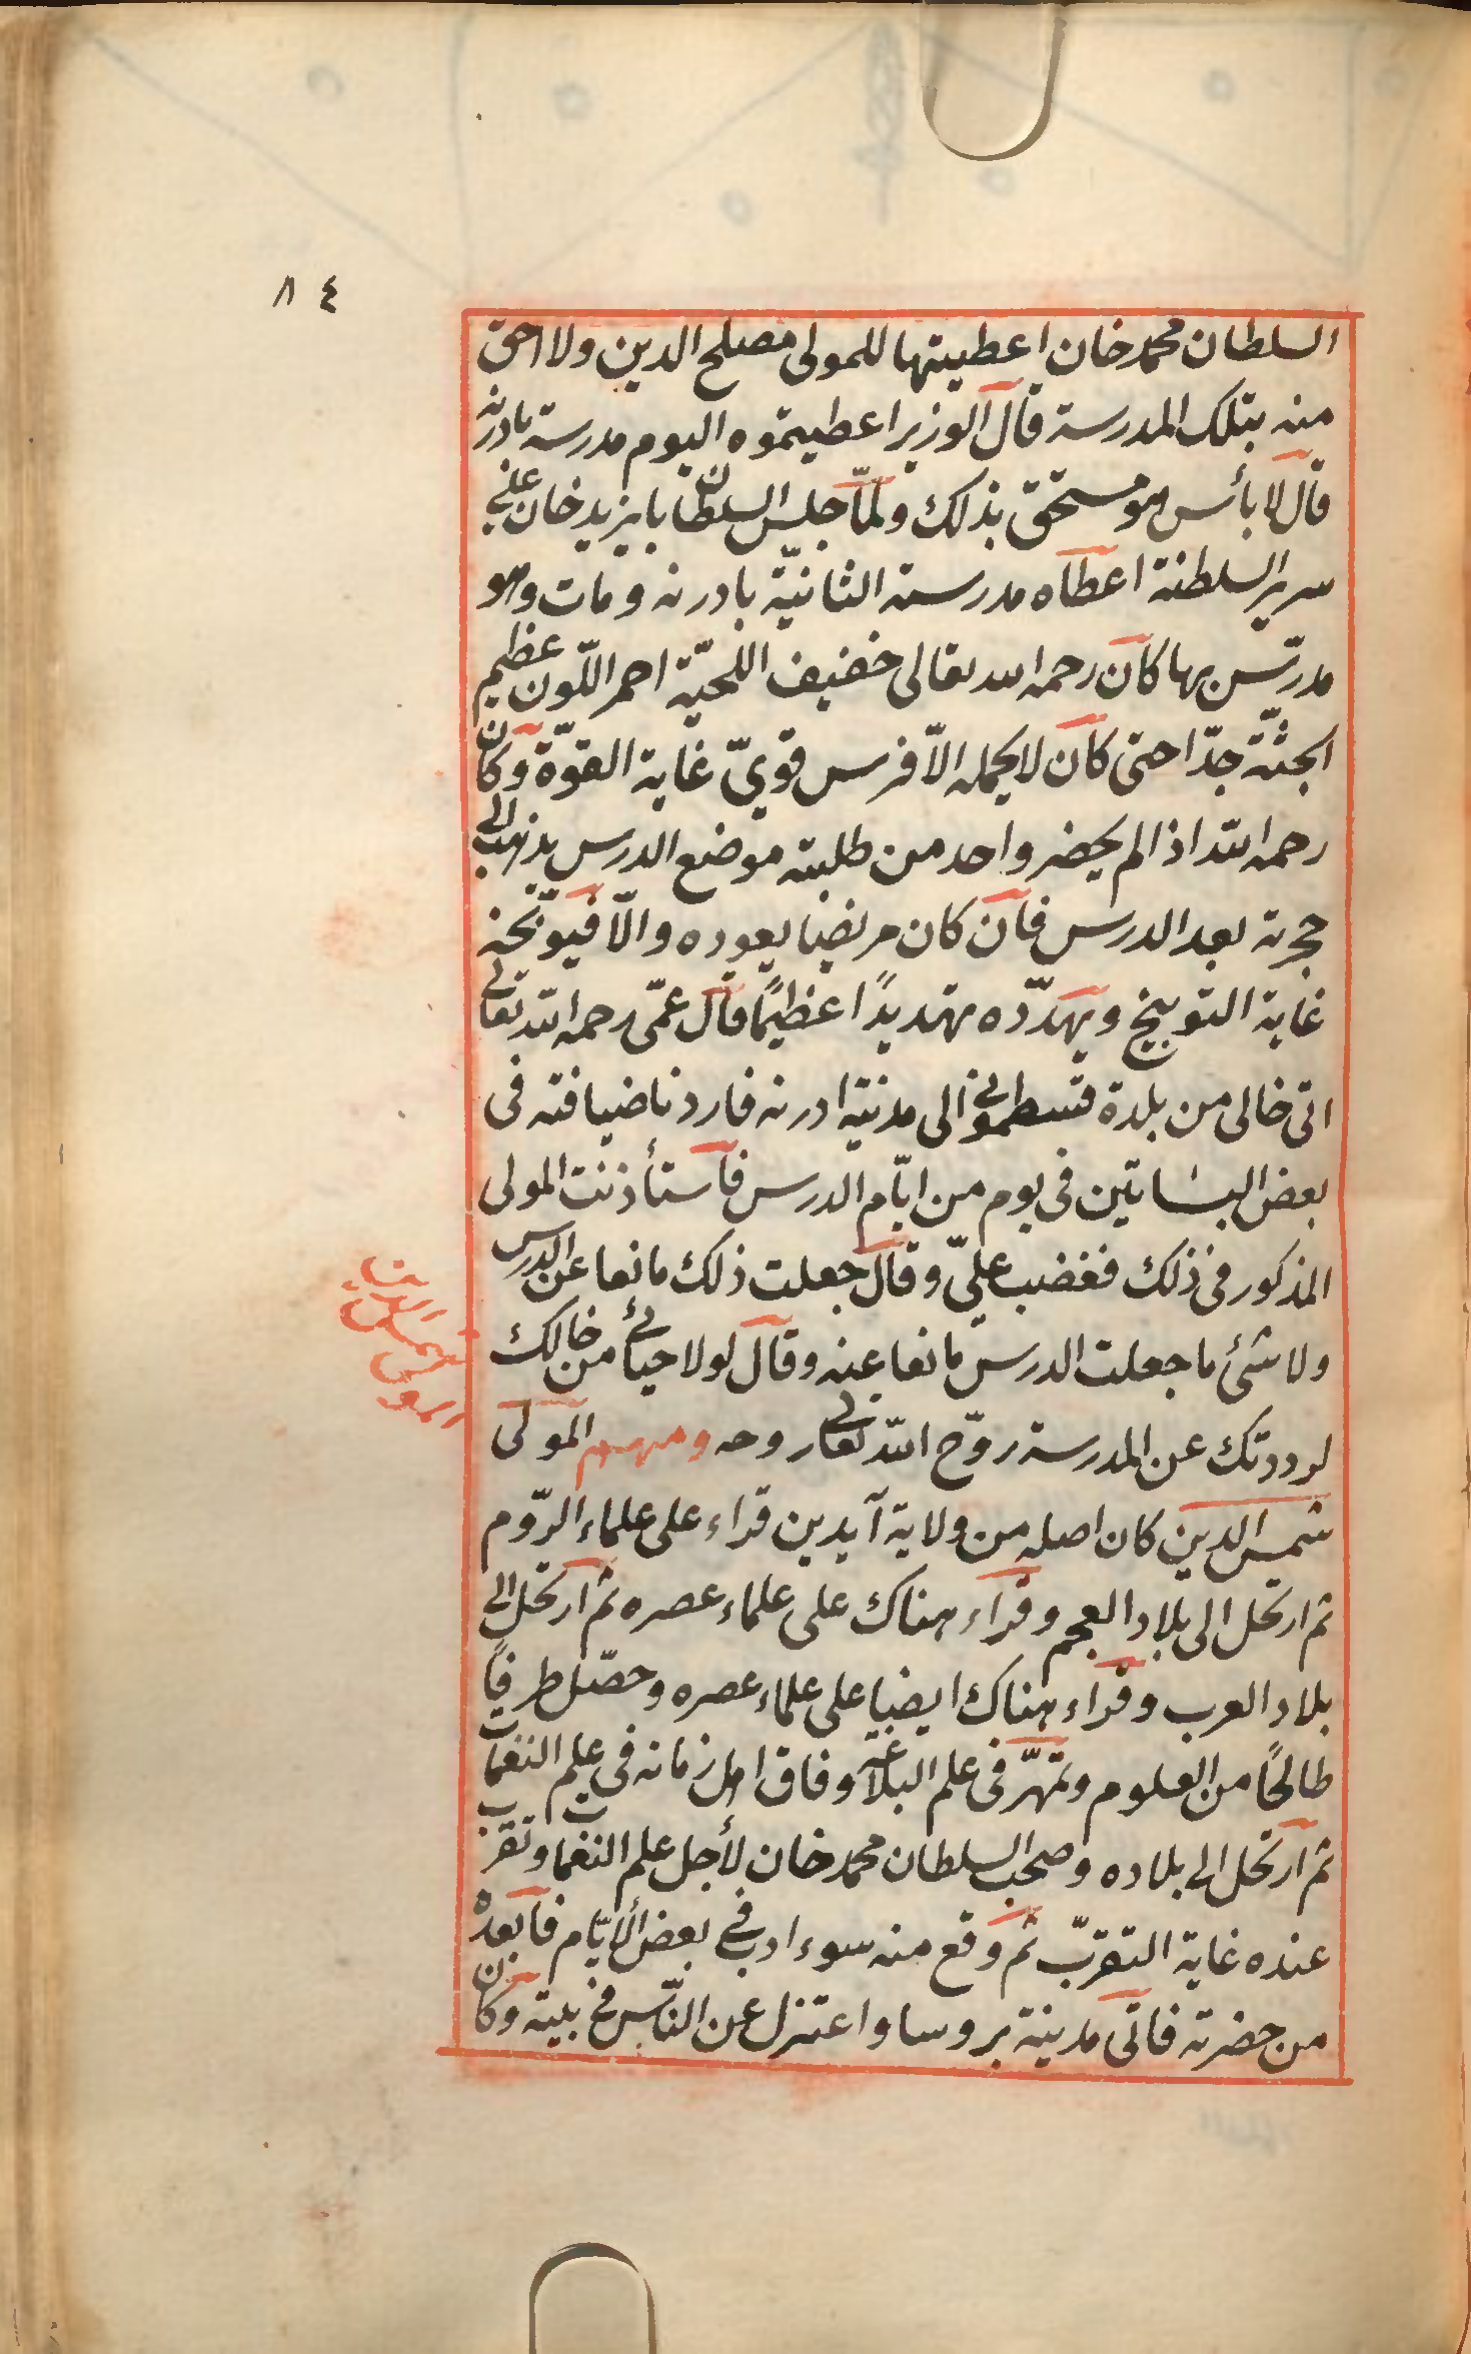 ٨٤
السلطان محمد خان اعطيتها للمولى مصلح الدين ولا احق
منه بتلك المدرسة قال الوزير اعطيتموه اليوم مدرسة بادرنه
قال لا بأس هو مستحق بذلك ولمّا جلس السلطان بايزيد خان على
سرير السلطنة اعطاه مدرسته الثانيّة بادرنه ومات وهو
مدرّس بها كان رحمه الله تعالى خفيف اللّحيّة احمر اللّون عظيم
الجثّة جدّا حتى كان لا يحمله الاّ فرس قويّ غاية القوّة وكان
رحمه الله اذا لم يحضر واحد من طلبته موضع الدرس يذهب الى
حجرته بعد الدرس فان كان مريضا يعوده والّا فيوبّخه
غاية التوبيخ ويهدّده تهديدًا عظيمًا قال عمّى رحمه الله تعالى
اتى خالى من بلدة قسطمونى الى مدينة ادرنه فاردنا ضيافته فى
بعض البساتين فى يوم من ايّام الدرس فاستأذنت المولى
المذكور فى ذلك فغضب علىّ وقال جعلت ذلك مانعا عن الدرس
ولاشئ ما جعلت الدرس مانعا عنه وقال لولا حيائى من خالك
لرددتك عن المدرسة روّح الله تعالى روحه ومنهم المولى
شمس الدين كان اصله من ولاية آيدين قراء على علماء الرّوم
ثم ارتحل الى بلاد العجم وقراء هناك على علماء عصره ثم ارتحل الى
بلاد العرب وقراء هناك ايضا على علماء عصره وحصّل طرفا
طالحًا من العلوم وتمهّر فى علم البلاغة وفاق اهل زمانه فى علم النغمات
ثم ارتحل الى بلاده وصحب السلطان محمد خان لأجل علم النغمات وتقرب
عنده غاية التقرّب ثم وقع منه سوء ادب فى بعض الأيّام فابعده
من حضرته فاتى مدينة بروسا واعتزل عن النّاس فى بيته وكان
المولى
شمس
الدين